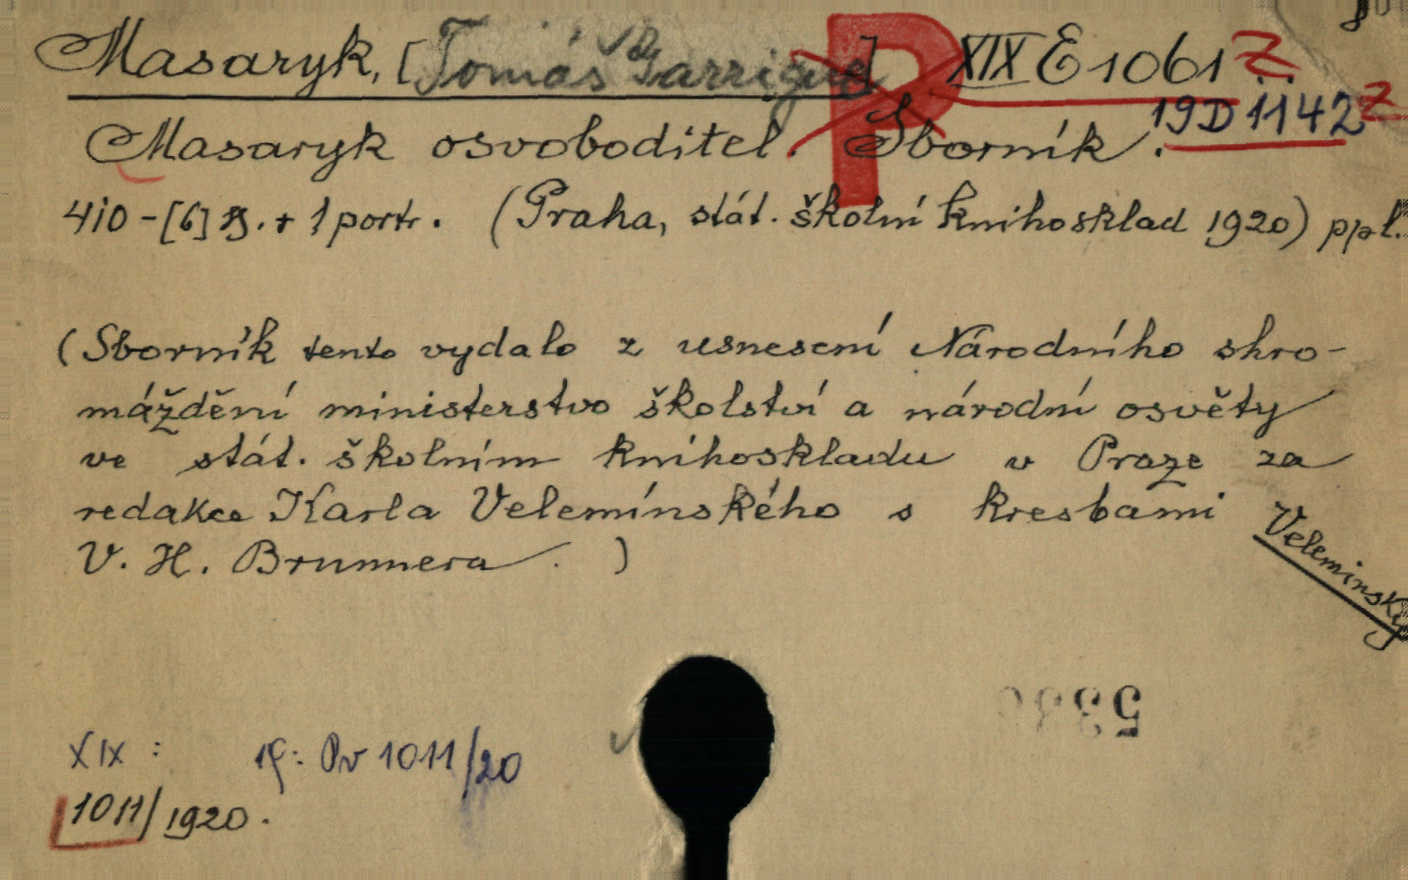 Masaryk, [Tomáš Garrigue] XIX E 1061 Z
P
19 D 1142 Z
Masaryk osvoboditel. Sborník.
410-[6] s. + 1 portr. (Praha, stát. školní knihosklad 1920) ppl.
(Sborník tento vydalo z usnesení Národního shro-
máždění ministerstvo školství a národní osvěty
ve stát. školním knihoskladu v Praze za
redakce Karla Velemínského s kresbami
V. H. Brunnera. )
Veleminský
XIX : 19: Pv 1011/20
1011/1920.